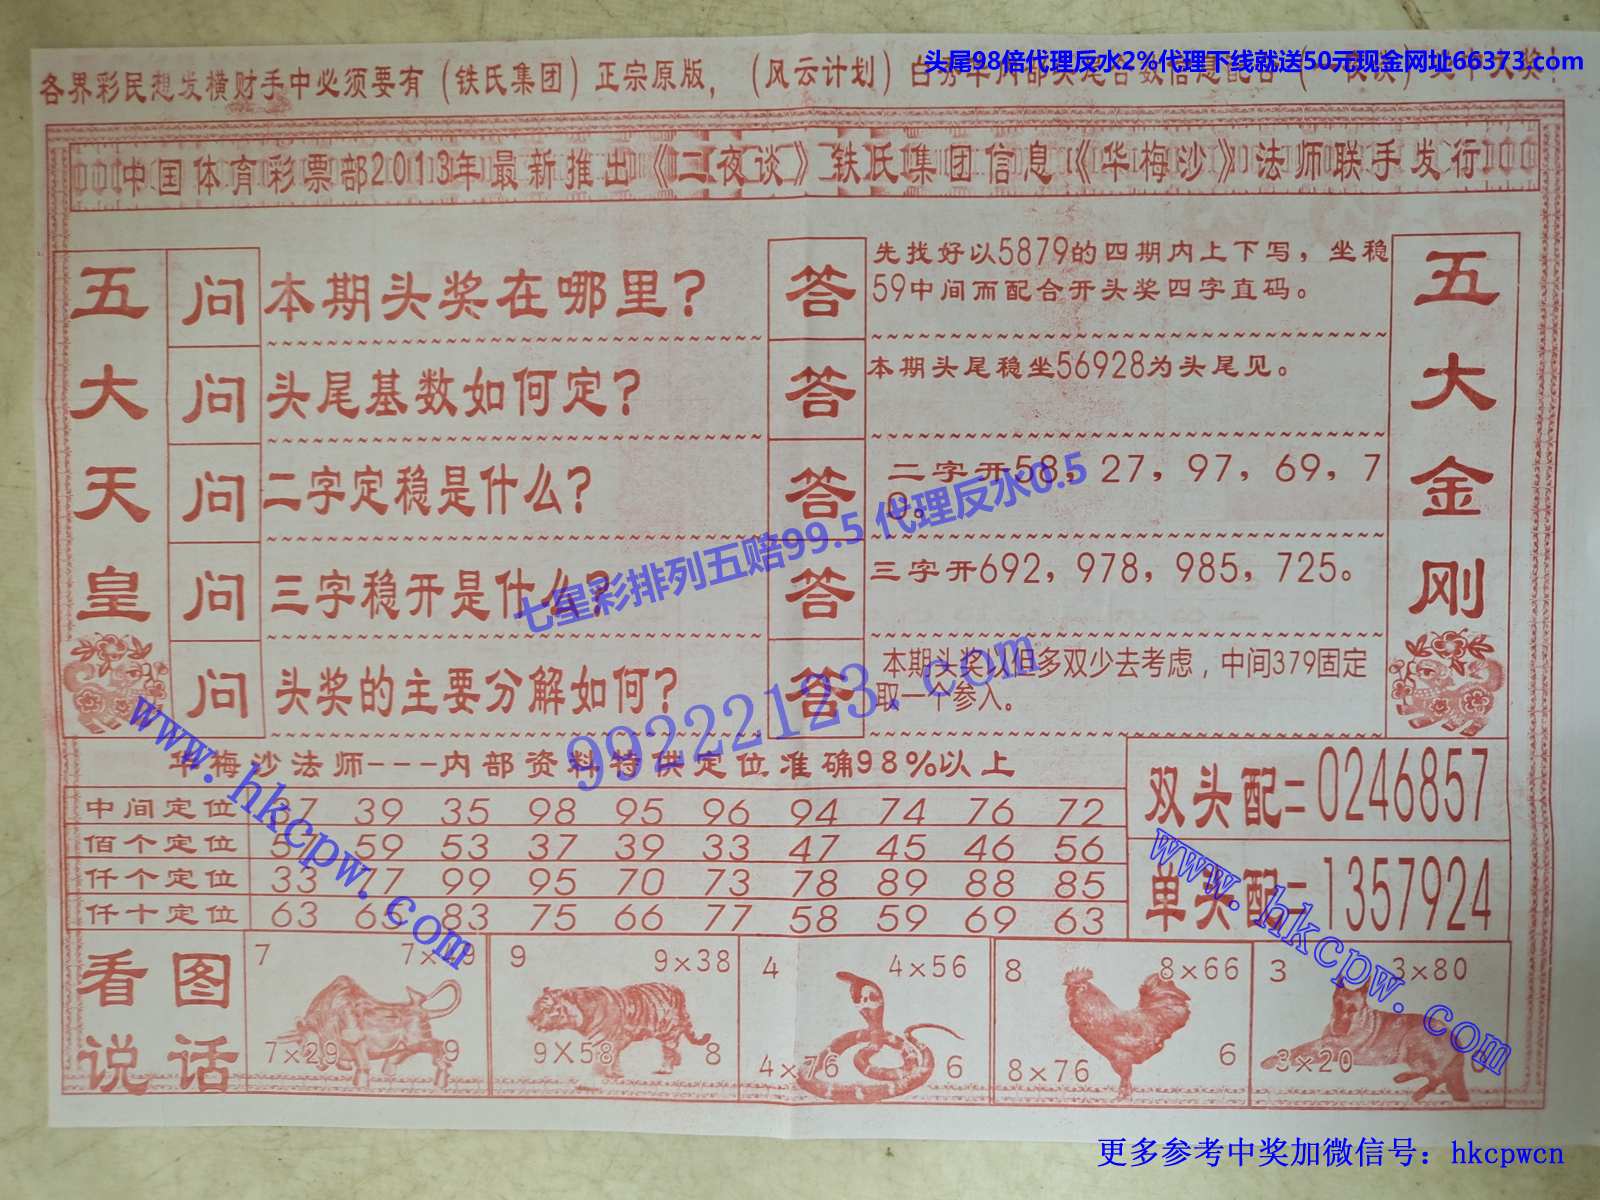 头尾98倍代理反水2%代理下线就送50元现金网址66373.com
各界彩民想发横财手中必须要有（铁氏集团）正宗原版，（风云计划）
中国体育彩票部2013年最新推出《二夜谈》铁氏集团信息《华梅沙》法师联手发行
五大天皇
问 本期头奖在哪里？
答 先找好以5879的四期内上下写，坐稳
59中间而配合开头奖四字直码。
问 头尾基数如何定？
答 本期头尾稳坐56928为头尾见。
问 二字定稳是什么？
答 二字开58，27，97，69，7
0。
问 三字稳开是什么？
答 三字开692，978，985，725。
问 头奖的主要分解如何？
答 本期头奖以但多双少去考虑，中间379固定
取一个参入。
五大金刚
七星彩排列五赔99.5 代理反水0.5
99222123.com
华梅沙法师---内部资料特供定位准确98%以上
中间定位 37 39 35 98 95 96 94 74 76 72
佰个定位 57 59 53 37 39 33 47 45 46 56
仟个定位 33 77 99 95 70 73 78 89 88 85
仟十定位 63 65 83 75 66 77 58 59 69 63
双头配=0246857
单头配=1357924
www.hkcpw.com
www.hkcpw.com
看图
说话
7 7×49
7×29 9
9 9×38
9×58 8
4 4×56
4×76 6
8 8×66
8×76 6
3 3×80
3×20
更多参考中奖加微信号：hkcpwcn